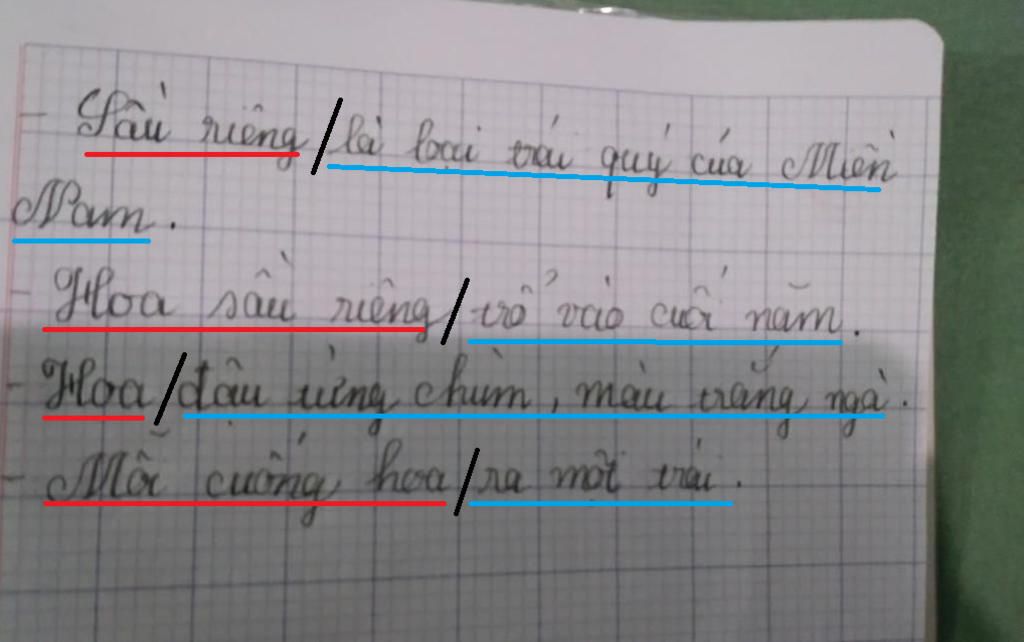 - Sầu riêng / là loại trái quý của Miền
Nam.
- Hoa sầu riêng / trổ vào cuối năm.
- Hoa / đậu từng chùm, màu trắng ngà.
- Mỗi cuống hoa / ra một trái.